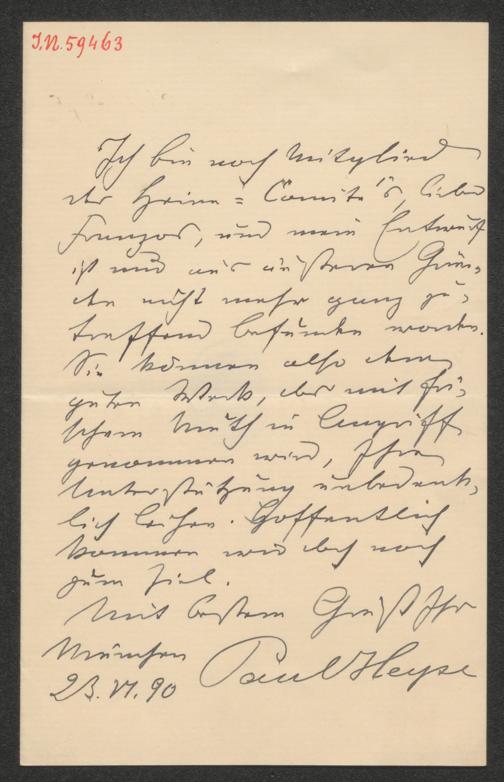 I.N. 59463
Ich bin noch Mitglied
des Heine-Comité's, lieber
Franzos, und mein Entwurf
ist nur aus äußeren Grün-
den nicht mehr ganz zu-
treffend befunden worden.
Sie können also dem
guten Werk, das mit fri-
schem Muth in Angriff
genommen wird, Ihre
Unterstützung unbedenk-
lich leihen. Hoffentlich
kommen wir doch noch
zum Ziel.
Mit bestem Gruß Ihr
München Paul Heyse
23. VI. 90